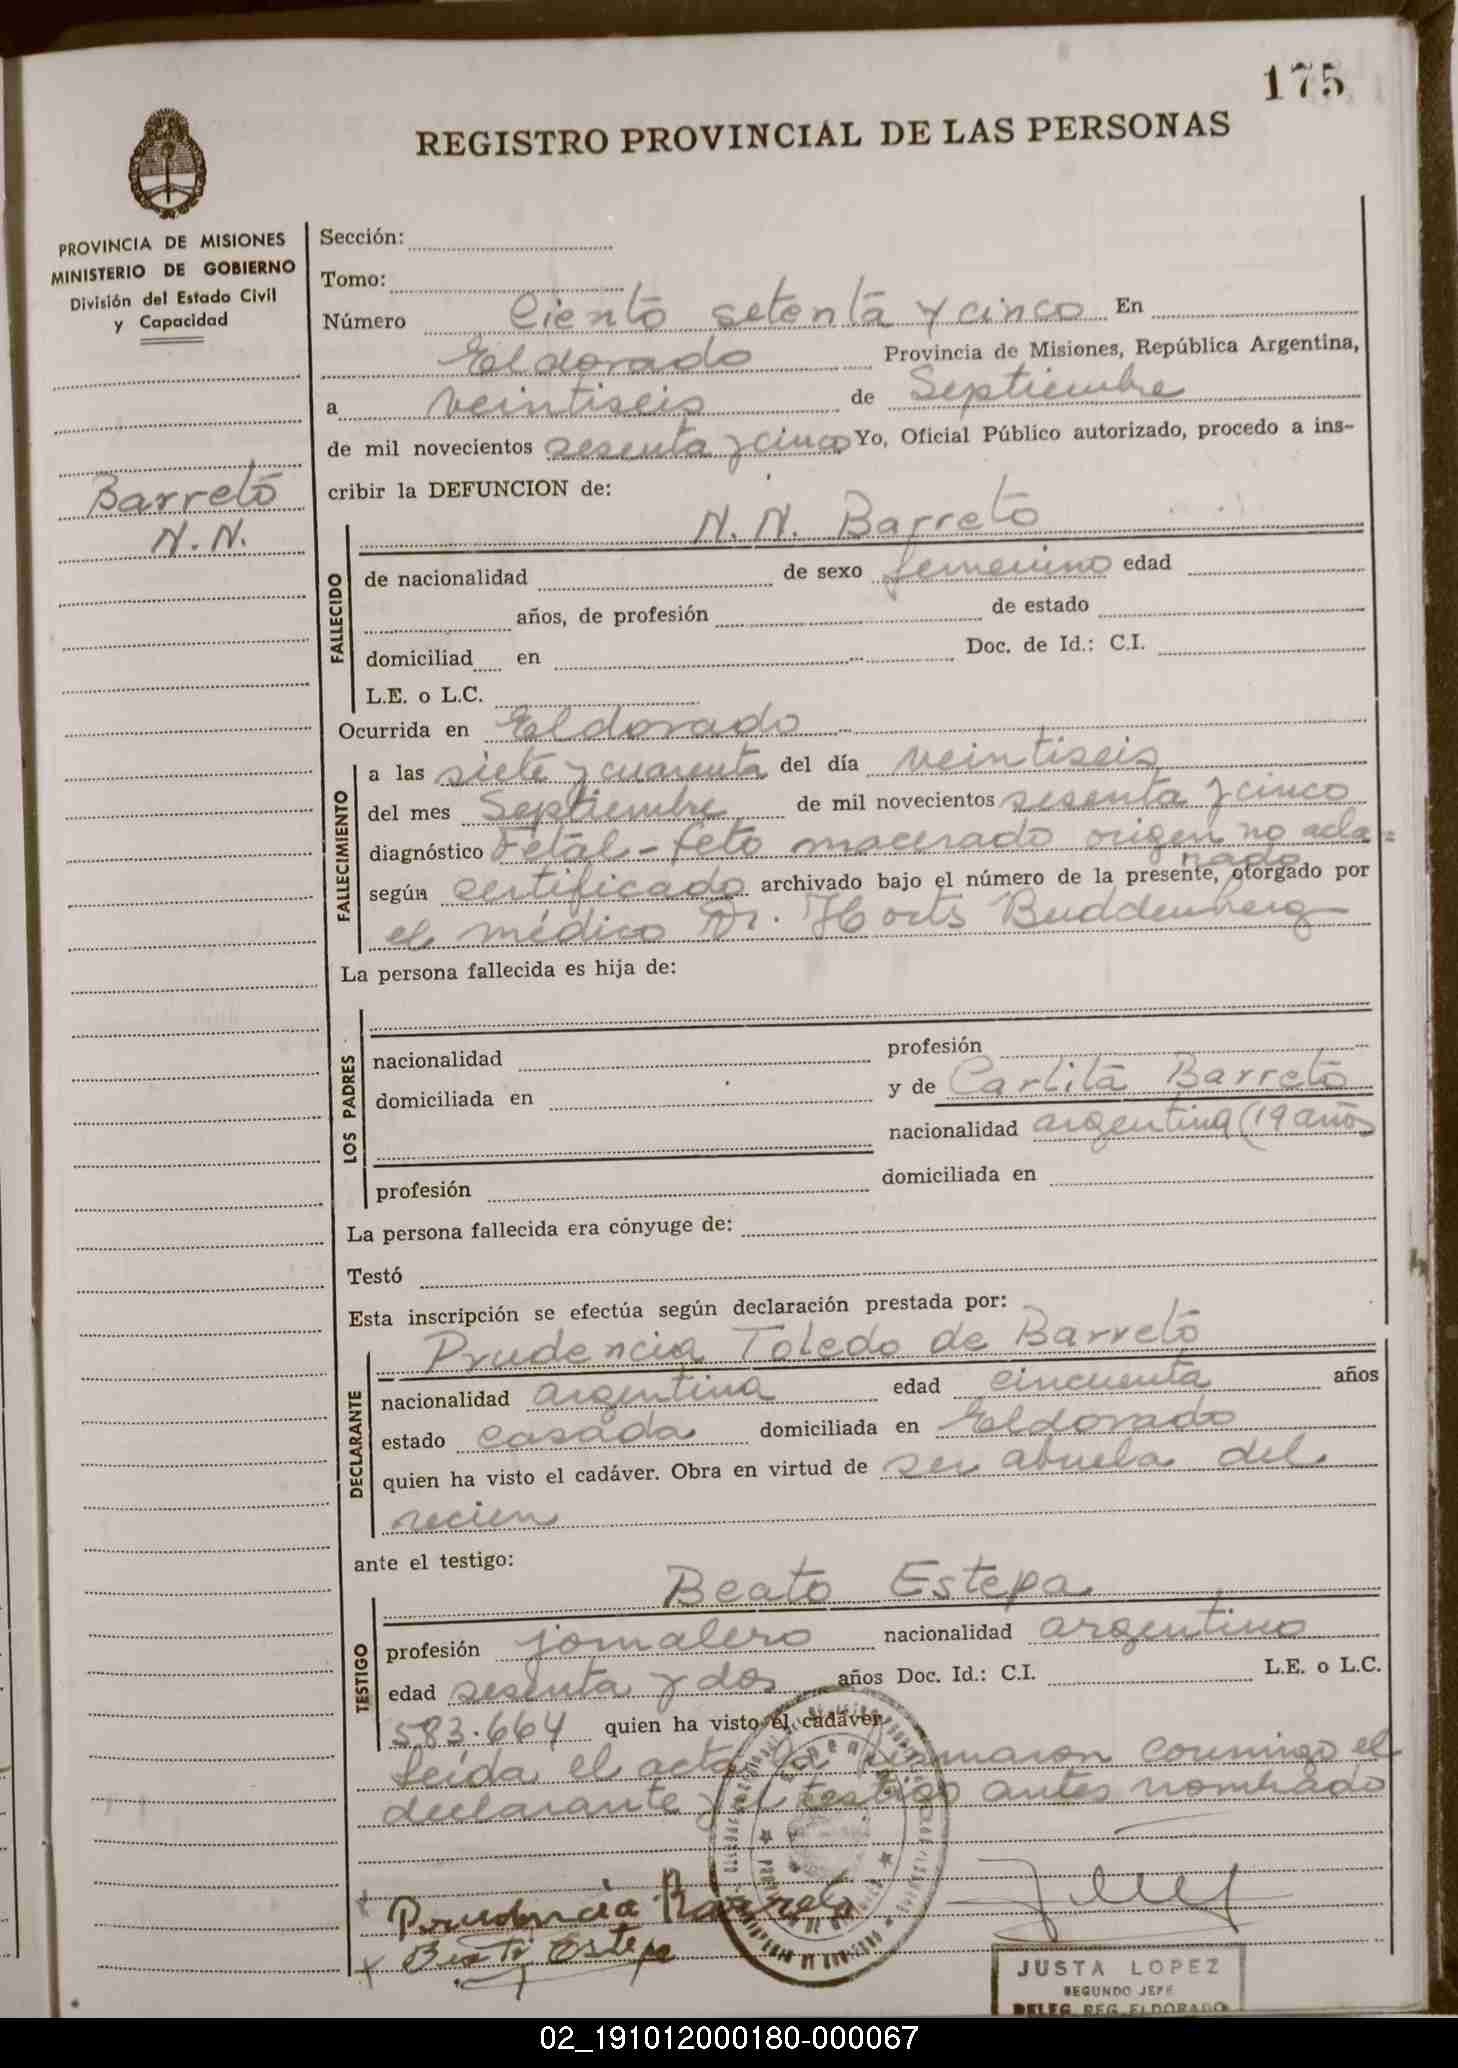 175
REGISTRO PROVINCIAL DE LAS PERSONAS
PROVINCIA DE MISIONES
MINISTERIO DE GOBIERNO
División del Estado Civil
y Capacidad
Barreto
N.N.
Sección:
Tomo:
Número Ciento setenta y cinco En
Eldorado Provincia de Misiones, República Argentina,
a veintiseis de Septiembre
de mil novecientos sesenta y cinco Yo, Oficial Público autorizado, procedo a ins-
cribir la DEFUNCION de:
N. N. Barreto
FALLECIDO
de nacionalidad de sexo femenino edad
años, de profesión de estado
domiciliad en Doc. de Id.: C.I.
L.E. o L.C.
Ocurrida en Eldorado
FALLECIMIENTO
a las siete y cuarenta del día veintiseis
del mes Septiembre de mil novecientos sesenta y cinco
diagnóstico Fetal - feto macerado origen no acla=
rado
según certificado archivado bajo el número de la presente, otorgado por
el médico Dr. Horts Buddenberg
La persona fallecida es hija de:
LOS PADRES
nacionalidad profesión
domiciliada en y de Carlita Barreto
nacionalidad argentina (19 años
profesión domiciliada en
La persona fallecida era cónyuge de:
Testó
Esta inscripción se efectúa según declaración prestada por:
Prudencia Toledo de Barreto
DECLARANTE
nacionalidad argentina edad cincuenta años
estado casada domiciliada en Eldorado
quien ha visto el cadáver. Obra en virtud de ser abuela del
recien
ante el testigo:
Beato Estepa
TESTIGO
profesión jornalero nacionalidad argentino
edad sesenta y dos años Doc. Id.: C.I. L.E. o L.C.
583.664 quien ha visto el cadáver
leída el acta la firmaron conmigo el
declarante y el testigo antes nombrado
Prudencia Barreto
Beato Estepa
JUSTA LOPEZ
SEGUNDO JEFE
DELEG. REG. ELDORADO
02_191012000180-000067